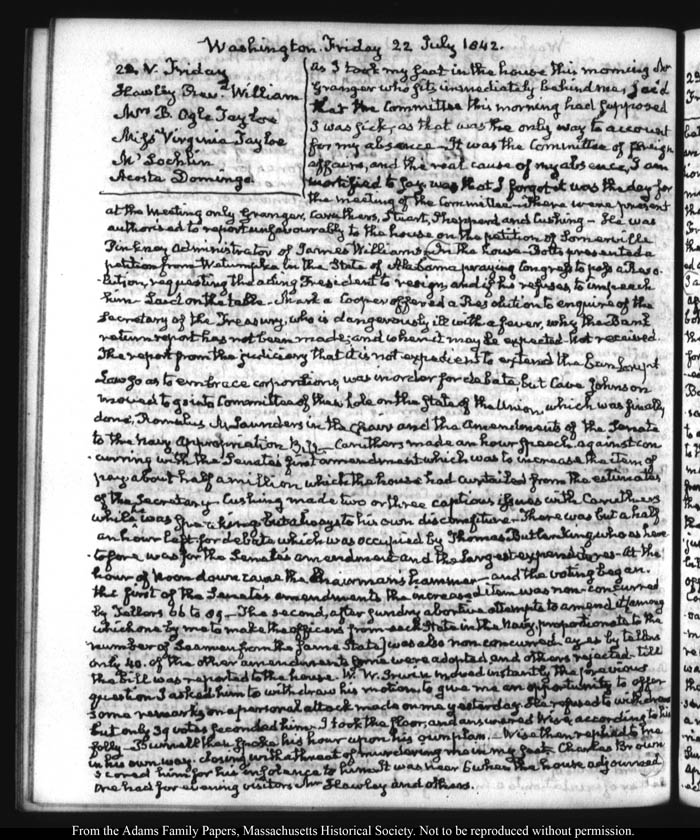 Washington. Friday 22 July 1842.
22. V. Friday
Hawley Revd. William
Mrs B. Ogle Tayloe
Miss Virginia Tayloe
Mr Lochlin
Acosta Domingo
As I took my seat in the house this morning Mr
Granger who sits immediately behind me, said
that the Committee this morning had supposed
I was sick, as that was the only way to account
for my absence — It was the Committee of foreign
affairs, and the real cause of my absence, I am
mortified to say, was that I forgot it was the day for
the meeting of the Committee — There were present
at the meeting only Granger, Caruthers, Stuart, Shepperd and Cushing — He was
authorised to report unfavourably to the house on the petition of Somerville
Pinkney Administrator of James Williams. In the house Botts presented a
petition from Wetumpka in the State of Alabama praying Congress to pass a Reso-
-lution, requesting the acting President to resign, and if he refuses to impeach
him — Laid on the table. Mark A Cooper offered a Resolution to enquire of the
Secretary of the Treasury, who is dangerously ill with a fever, why the Bank
return report has not been made; and when it may be expected. Not received.
The report from the judiciary that it is not expedient to extend the Bankrupt
Law so as to embrace corporations, was in order for debate, but Cave Johnson
moved to go into Committee of the whole on the State of the Union which was finally
done; Romulus M. Saunders in the chair and the Amendments of the Senate
to the Navy Appropriation Bill — Caruthers made an hour speech against con
-curring with the Senate's first amendment which was to increase the item of
pay about half a million which the house had curtailed from the estimates
of the Secretary — Cushing made two or three captious issues with Caruthers
while he was speaking but always to his own discomfiture — There was but a half
an hour left for debate which was occupied by Thomas Butler King who as here
-tofore was for the Senate's amendment and the largest expenditures — At the
hour of Noon down came the Chairman's hammer — and the voting began.
the first of the Senate's amendments the increased item was non-concurred
by Tellers 66 to 89 — The second, after sundry abortive attempts to amend it [among
which one by me to make the officers from each State in the Navy, proportionate to the
number of Seamen from the same State] was also non concurred ayes by tellers
only 40. of the other amendments some were adopted and others rejected — till
the bill was reported to the house. W. W. Irwin moved instantly the previous
question. I asked him to withdraw his motion to give me an opportunity to offer
some remarks on a personal attack made on me yesterday. He refused to withdraw
but only 39 votes seconded him. I took the floor, and answered Wise according to his
folly — Burnell then spoke his hour upon his gun plan. — Wise then replied to me
in his own way: closing with a threat of murdering me in my seat. Charles Brown
scored him for his insolence to him. It was near 6 when the house adjourned
We had for evening visitors Mr Hawley and others.
From the Adams Family Papers, Massachusetts Historical Society. Not to be reproduced without permission.